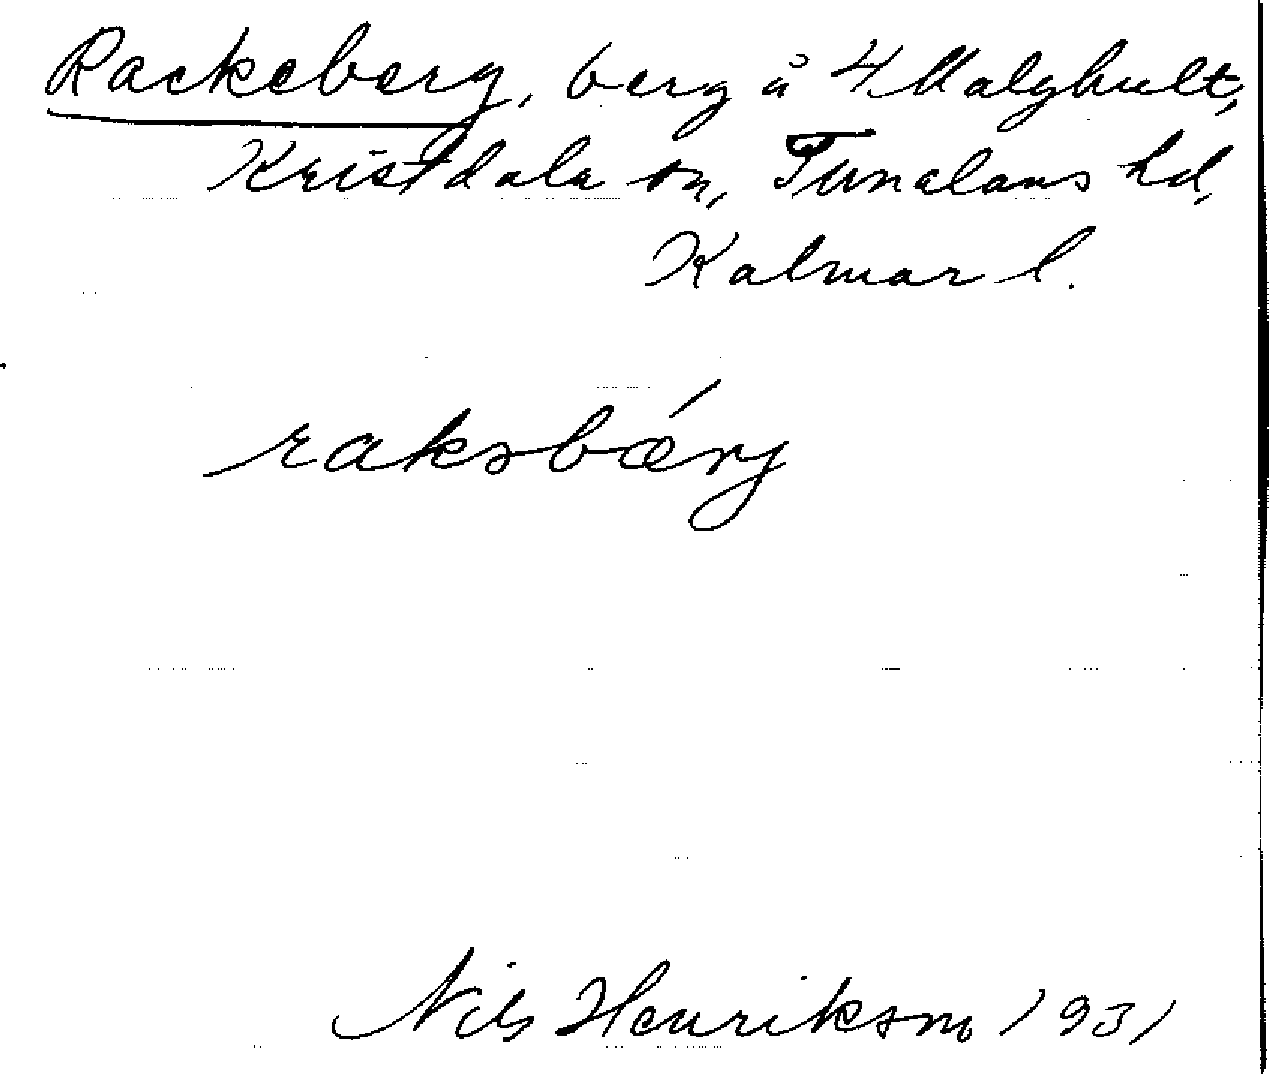 Rackeberg, berg å 4 Malghult,
Kristdala sn, Tunaläns hd,
Kalmar l.
raksbærj
Nils Henrikson 1931